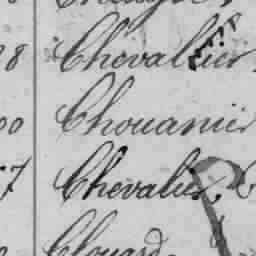 8 Chevallier
00 Chouanier
7 Chevalier, C
Clouard